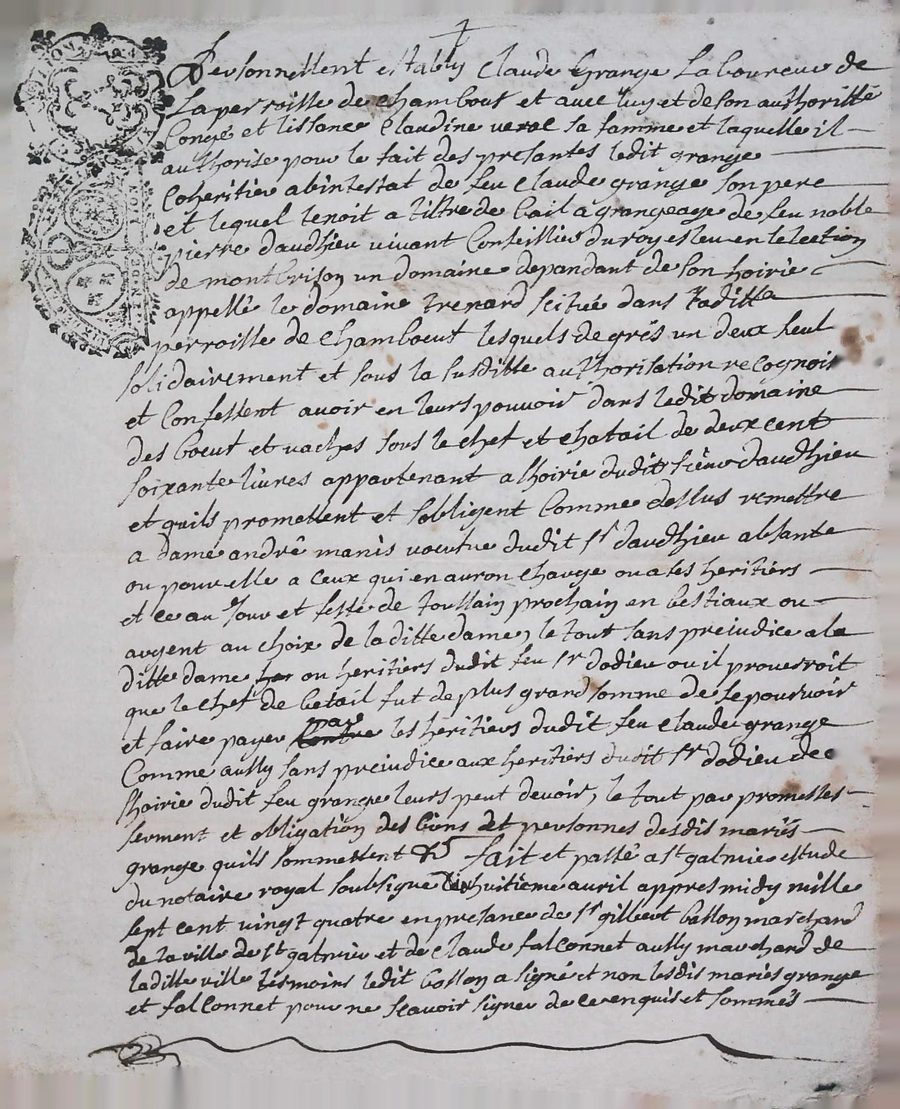 Personnellent estably Claude Grange Laboureur de
La perroisse de Chambout et avec luy et de son authoritté
Congé et lissance Claudine verne sa famme et laquelle il
authorise pour le fait des presantes ledit grange
Coheritier abintestat de feu Claude grange son pere
et lequel tenoit a tiltre de bail a grangeage de feu noble
pierre daudhieu vivant Conseillier du roy esleu en lelection
de montbrison un domaine depandant de son hoirie
appellé le domaine trenard scitué dans laditte
perroisse de Chambout lesquels de grés un deux seul
solidairement et sous la susditte authorisation recognoit
et Confessent avoir en leurs pouvoir dans ledit domaine
des boeuf et vaches sous le chef et chatail de deux cent
soixante livres appartenant a lhoirie dudit sieur daudhieu
et quils promettent et sobligent Comme dessus remettre
a dame andrê manis voeufve dudit sr daudhieu absante
ou pour elle a ceux qui en auron charge ou a ses heritiers
et ce au Jour et feste de toussain prochain en bestiaux ou
argent au choix de laditte dame, le tout sans preiudice a la
ditte dame ou heritiers dudit feu sr dodieu ou il prouverroit
que le chef de betail fut de plus grand somme de se pourvoir
et faire payer par les heritiers dudit feu Claude grange
Comme aussy sans preiudice aux heritiers dudit sr dodieu de ce
lhoirie dudit feu grange leurs peut devoir, le tout par promesses
serment et obligation des biens et personnes desdis mariés
grange quils sommettent &c fait et passé a st galmier estude
du notaire royal soubsigné dixhuitieme avril appres midy mille
sept cent vingt quatre en presance de sr gilbert ballon marchand
de la ville de st galmier et de Claude falconnet aussy marchand de
laditte ville tesmoins ledit ballon a signé et non lesdis mariés grange
et falconnet pour ne scavoir signer de ce enquis et sommés